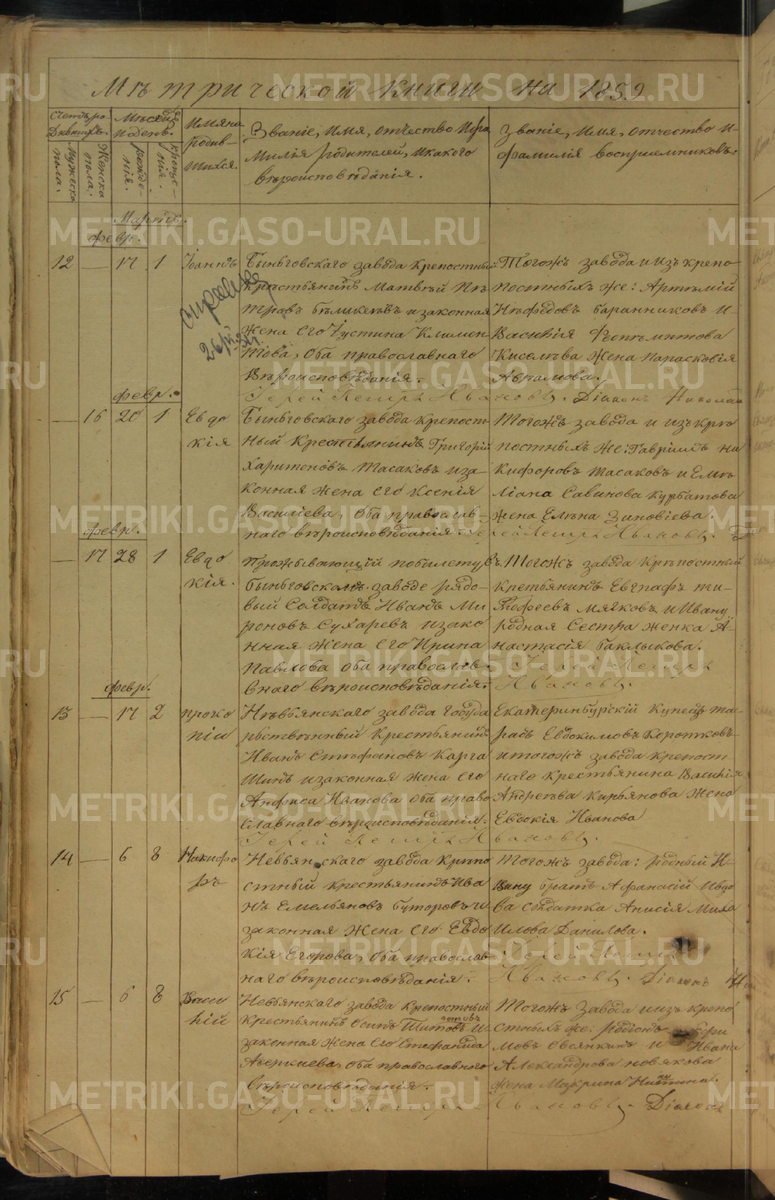 Метрической книги на 1859
Счетъ родившихъ. Мужеска пола. Женска пола.
Мѣсяцъ и день. рождения. крещения.
Имяна родившихся.
Званіе, Имя, отчество и фамилія родителей, и какого вѣроисповѣданія.
Званіе, имя, отчество и фамилія восприемниковъ.
Мартъ.
февр.
12 — 17 1 Іоаннъ
Быньговскаго завода крепостный
крестьянинъ Матвѣй Пе
тровъ и законная
жена его Іустина Климен
това, оба православнаго
вѣроисповѣданія.
Тогожъ завода и изъ крепо
постныхъ же: Артемій
Нефедовъ Баранниковъ и
Василія
Киселева жена Параскевія
Іерей Петръ Ивановъ. Діаконъ Николай
февр.
— 16 20 1 Евдо
кія
Быньговскаго завода крепост
ный крестьянинъ Григорій
Харитоновъ Масаковъ и за
конная жена его Ксенія
Васильева, оба православ
наго вѣроисповѣданія
Тогожъ завода и изъ кре
постныхъ же: Гавріилъ Ни
кифоровъ Масаковъ и Еме
ліана Савинова Курбатова
жена Елена Зиновіева.
Іерей Петръ Ивановъ.
февр.
— 17 28 1 Евдо
кія.
Проживающій по билету в
Быньговскомъ заводе рядо
вый Солдатъ Иванъ Ми
роновъ Сухаревъ и зако
нная жена его Ирина
Павлова оба православ
внаго вѣроисповѣданія.
Тогожъ завода крѣпостный
Евграфъ Ти
мофеевъ Мягковъ и Ивану
родная сестра женка А
настасія Баклыкова.
Іерей Петръ
Ивановъ.
февр.
13 — 17 2 Проко
пій
Невьянскаго завода Госуда
рьственный крестьянинъ
Иванъ Стефановъ Карга
шинъ и законная жена его
Анфиса Иванова оба право
славнаго вѣроисповѣданія.
Екатеринбурскій купецъ Та
расъ Евдокимовъ Коротковъ
и тогожъ завода крепост
наго крестьянина Василія
Андреева Кирьянова жена
Евдокія Иванова
Іерей Петръ Ивановъ.
14 — 6 8 Никифо
ръ
Невьянскаго завода Крепо
стный крестьянинъ Ива
нъ Емельяновъ Буторовъ и
законная жена его Евдо
кія Егорова, оба православ
наго вѣроисповѣданія.
Тогожъ завода: родный И
вану братъ Афанасій и вдо
ва солдатка Анисія Миха
илова Данилова.
Іерей Петръ
Ивановъ. Діаконъ
15 — 6 8 Васи
лій
Невьянскаго завода крепостный
крестьянинъ Осипъ Титовъ и
законная жена его Стефанида
Аверкиева, оба православнаго
вѣроисповѣданія.
Тогожъ завода и изъ крепо
стныхъ же: Родіонъ
мовъ Овсянкинъ и Ивана
Александрова Новякова
жена Макрина Никитина.
Іерей Петръ Ивановъ. Діаконъ
METRIKI.GASO-URAL.RU